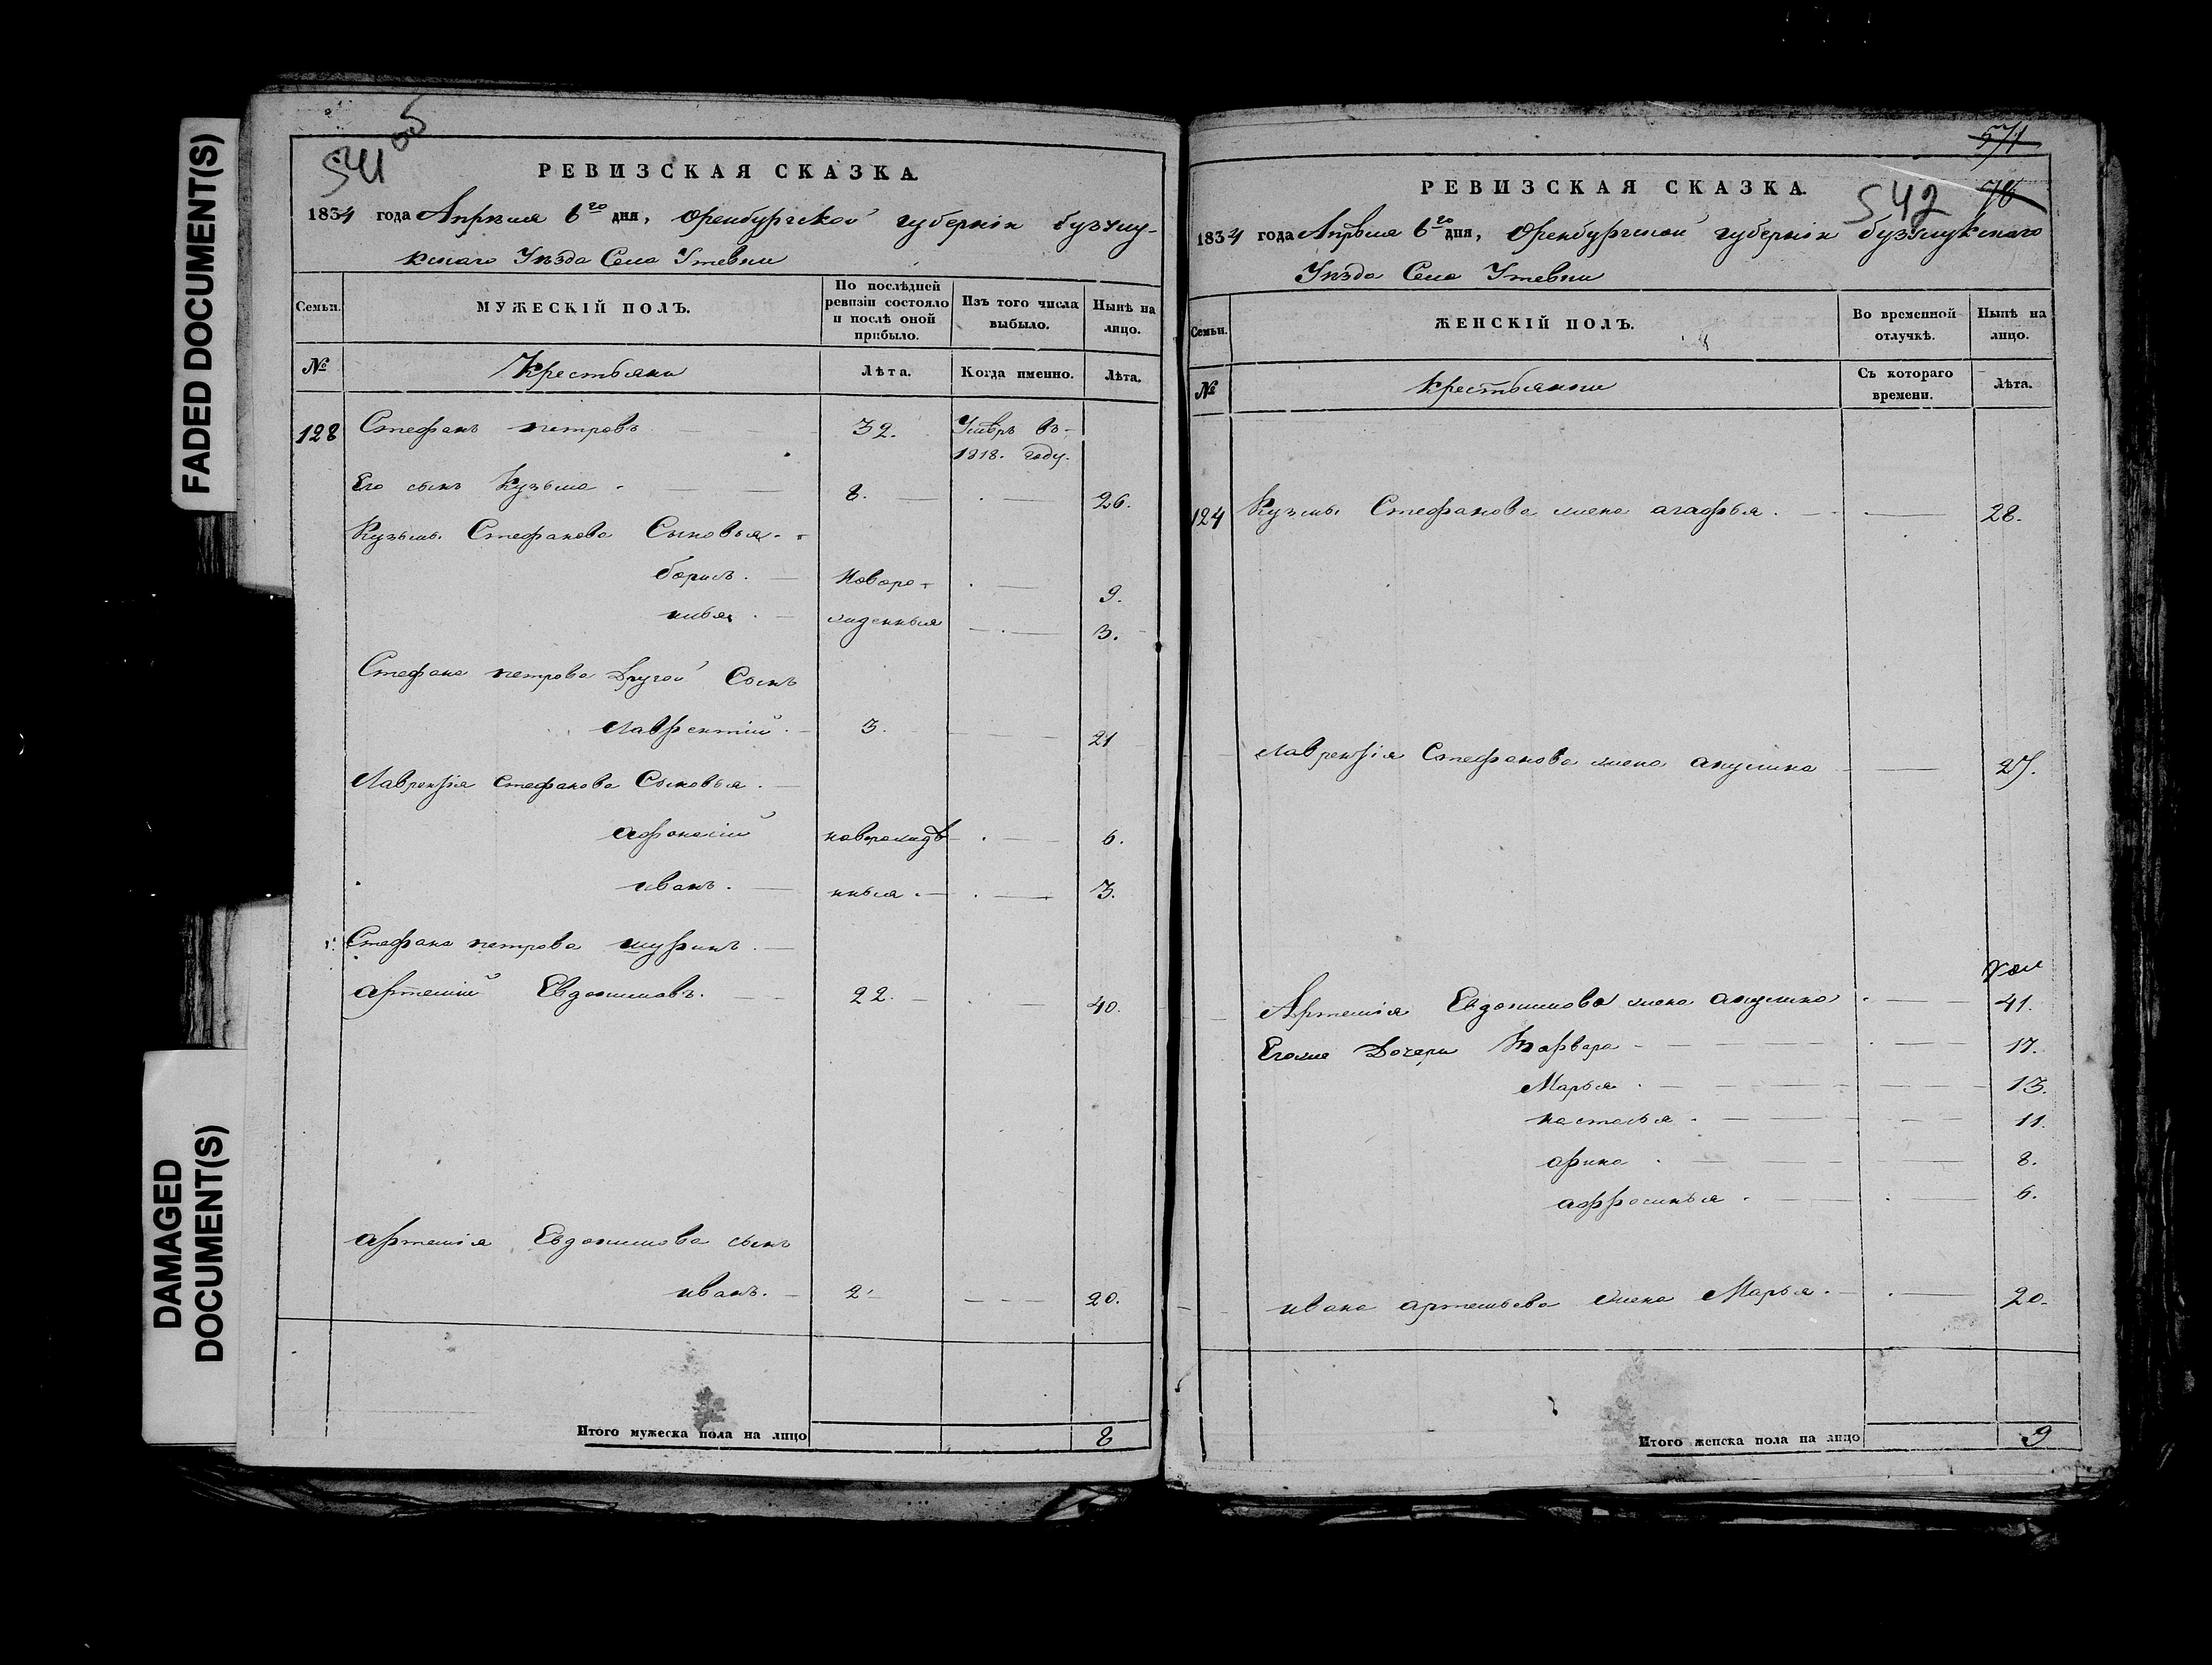 FADED DOCUMENT(S)
DAMAGED
DOCUMENT(S)
541 об
РЕВИЗСКАЯ СКАЗКА.
1834 года Апрѣля 6го дня, Оренбургской губерніи бузулу-
кскаго Уѣзда Села Утевки
Семьи.
МУЖЕСКІЙ ПОЛЪ.
По послѣдней
ревизіи состояло
и послѣ оной
прибыло.
Изъ того числа
выбыло.
Нынѣ на
лицо.
№
Крестьяне
Лѣта.
Когда именно.
Лѣта.
128 Стефанъ петровъ 32. Умѣръ въ
1818. году.
Его сынъ Кузьма 8. 26.
Кузьмы Стефанова Сыновья
борисъ. Новоро- 9.
илья. жденныя 3.
Стефана петрова Другой Сынъ
лаврентій 3. 21
Лаврентія стефанова Сыновья.
афонасій новорожде 6.
иванъ. нныя. 3.
Стефана петрова шуринъ.
артемій Евдокимовъ. 22. 40.
артемія Евдокимова сынъ
иванъ. 2. 20.
Итого мужеска пола на лицо 8
571
76
542
РЕВИЗСКАЯ СКАЗКА.
1834 года Апрѣля 6го дня, Оренбургской губерніи бузулукскаго
Уѣзда Села Утевки
Семьи.
ЖЕНСКІЙ ПОЛЪ.
Во временной
отлучкѣ.
Нынѣ на
лицо.
№
крестьянки
Съ котораго
времени.
Лѣта.
124 Кузмы Стефанова жена агафья. 28.
лаврентія Стефанова жена акулина 27.
Артемія Евдокимова жена акулина 41.
Егоже Дочери Варвара 17.
Марья 13.
настасья 11.
арина 8.
аффросинья 6.
ивана артемьева жена Марья. 20.
Итого женска пола на лицо 9